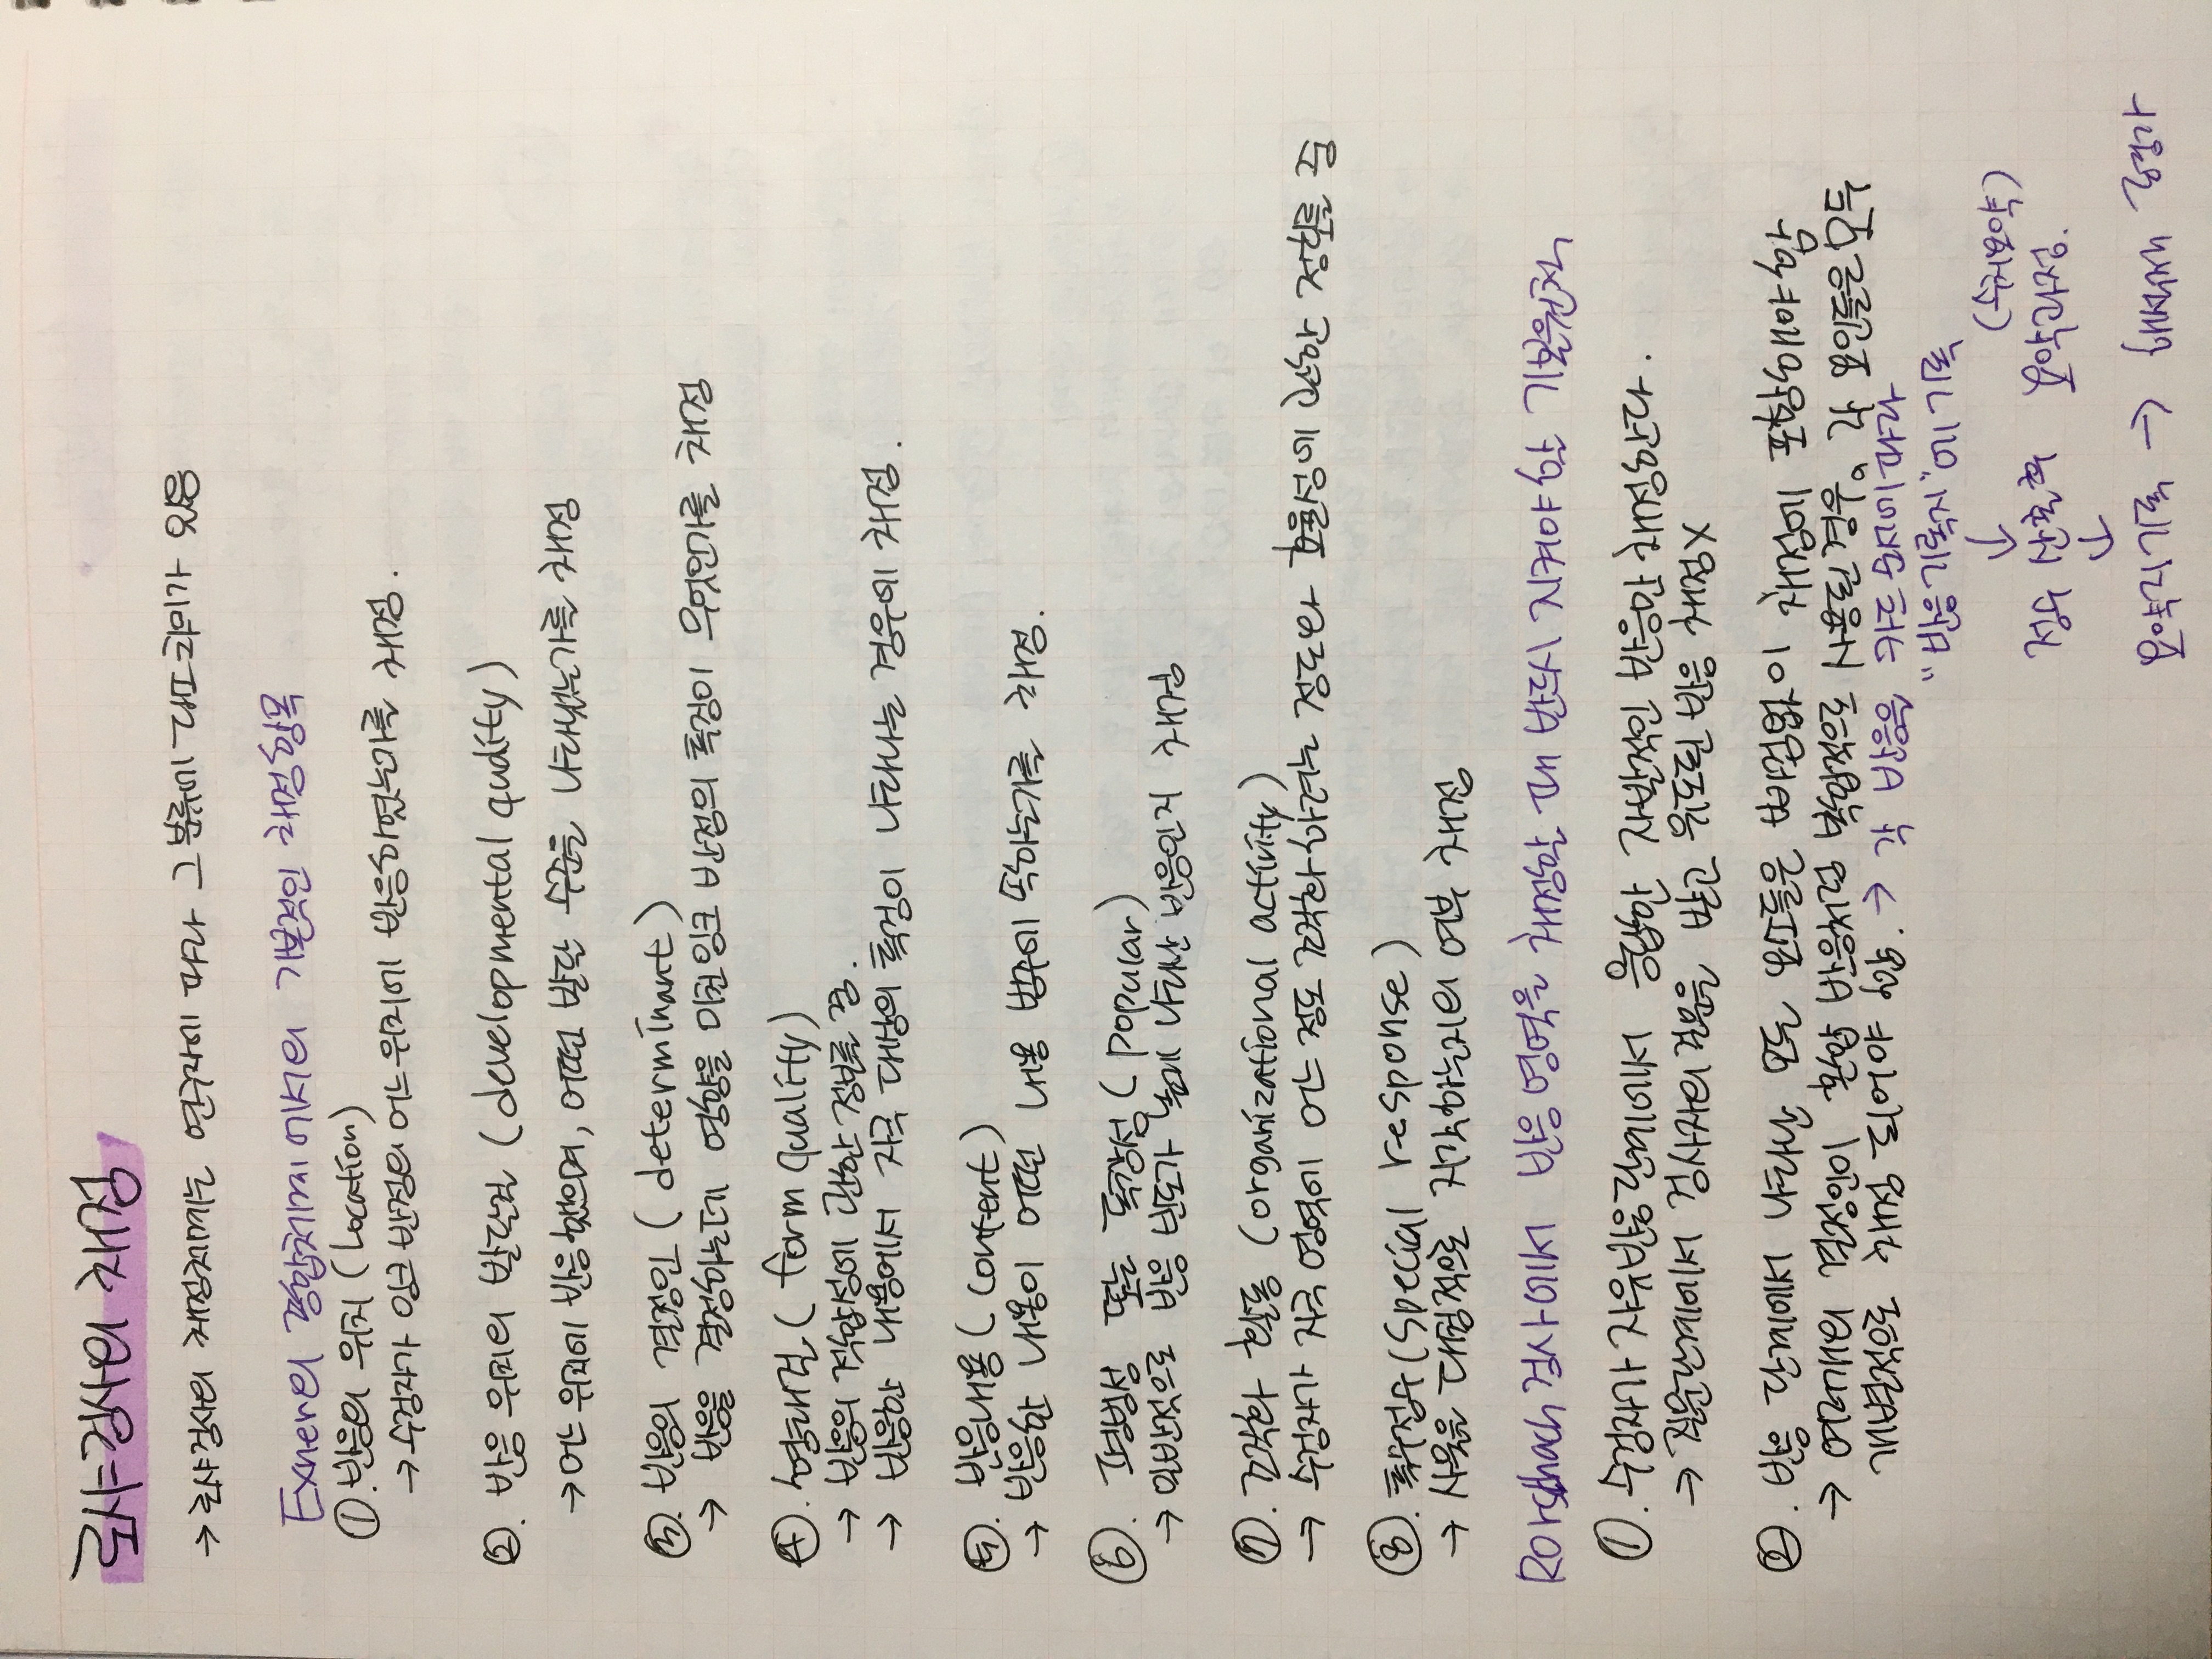 로샤검사의 채점
→ 로샤검사의 채점체계는 연구자에 따라 그 분류에 다소 차이가 있음
Exner의 종합체계에서의 기본적인 채점항목
①. 반응의 위치 (Location)
→ 수검자가 잉크 반점의 어느 위치에 반응하였는가를 채점.
②. 반응 위치의 발달질 (developmental quality)
→ 어느 위치에 반응했으며, 어떤 발달 수준을 나타냈는가를 채점
③. 반응의 결정인 (determinant)
→ 반응을 결정하는데 영향을 미친 잉크 반점의 특징이 무엇인가를 채점
④. 형태질 (form quality)
→ 반응의 적합성에 관한 정보를 줌.
→ 반응한 내용에서 자극 대상의 특징이 나타나는 경우에 채점.
⑤. 반응내용 (content)
→ 반응한 내용이 어떤 내용 범주에 속하는가를 채점.
⑥. 평범성 또는 독창성 (popular)
→ 일반적으로 반응 빈도가 높게 나타난 반응인지 채점
⑦. 조직화 활동 (organizational activity)
→ 수검자가 자극 영역에 어느 정도 조직화 하려는 정도와 효율성에 관한 정보를 줌
⑧. 특수점수 (special response)
→ 사물을 대칭적으로 지각하는지의 여부 채점
Rorschach 검사에서 반응영역을 채점할 때 반드시 지켜야 할 기본원칙
①. 수검자가 자유반응단계에서 응답한 자발적인 반응만 채점한다.
→ 질문단계에서 검사자의 질문을 받고 유도된 반응 채점X
②. 반응 단계에서 나타난 모든 요소들은 빠짐없이 채점에 포함해야 함
→ 여러개의 결정인이 혼합 반응처럼 복합적으로 사용된 경우, 각 요인들은 모두
개별적으로 채점 되어야 함. → 각 반응을 카드 순서에 따라
"반응기록지"에 기록
↓ (수치요약)
점수 산출 후 요약과정.
↓
요약지기록 → 해석 평가